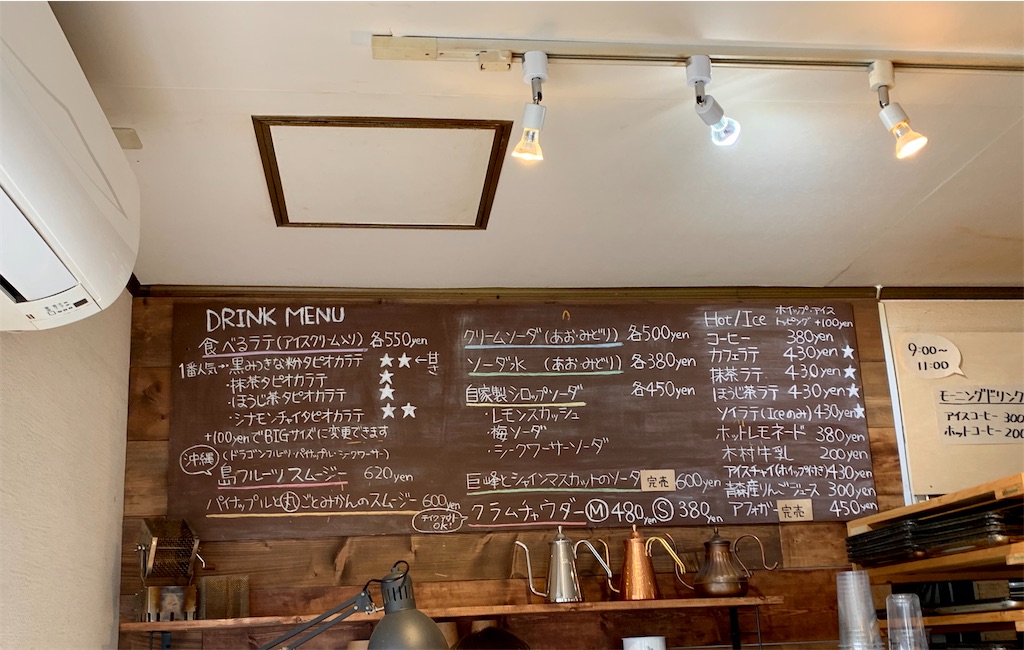 DRINK MENU
食べるラテ(アイスクリーム入り) 各550yen
1番人気→黒みつきな粉タピオカラテ ★★←甘さ
・抹茶タピオカラテ ★
・ほうじ茶タピオカラテ ★
・シナモンチャイタピオカラテ ★★
+100yenでBIGサイズに変更できます
沖縄 (ドラゴンフルーツ・パイナップル・シークワーサー)
島フルーツスムージー 620yen
パイナップルと丸ごとみかんのスムージー 600yen
クリームソーダ(あお・みどり) 各500yen
ソーダ水 (あお・みどり) 各380yen
自家製シロップソーダ 各450yen
・レモンスカッシュ
・梅ソーダ
・シークワーサーソーダ
巨峰とシャインマスカットのソーダ 完売 600yen
テイクアウトOK
クラムチャウダー Ⓜ480yen Ⓢ380yen
Hot/Ice ホイップ・アイス
トッピング+100yen
コーヒー 380yen
カフェラテ 430yen★
抹茶ラテ 430yen★
ほうじ茶ラテ 430yen★
ソイラテ(Iceのみ)430yen★
ホットレモネード 380yen
木村牛乳 200yen
アイスチャイ(ホイップ付き)430yen
青森産りんごジュース 300yen
アフォガード 完売 450yen
9:00~
11:00
モーニングドリンク
アイスコーヒー 300
ホットコーヒー 200